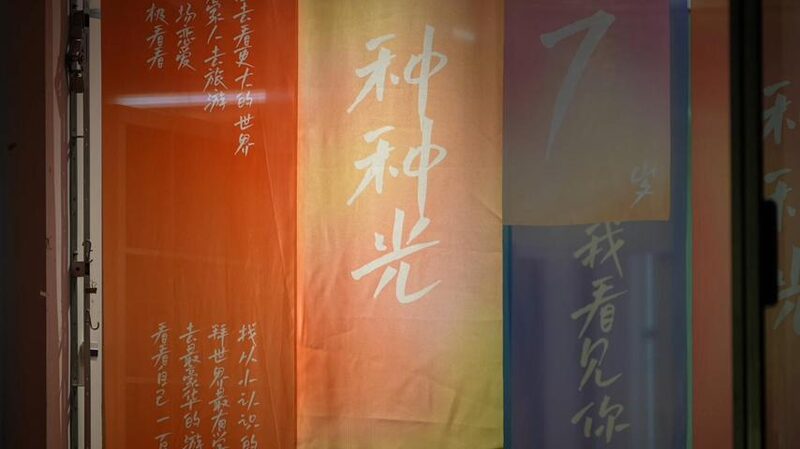 去看更大的世界
家人去旅游
场恋爱
极看看
找从小认识的
拜世界最有
去最豪华的游
看看自己一百
种种光
7岁
我看见你
种种光